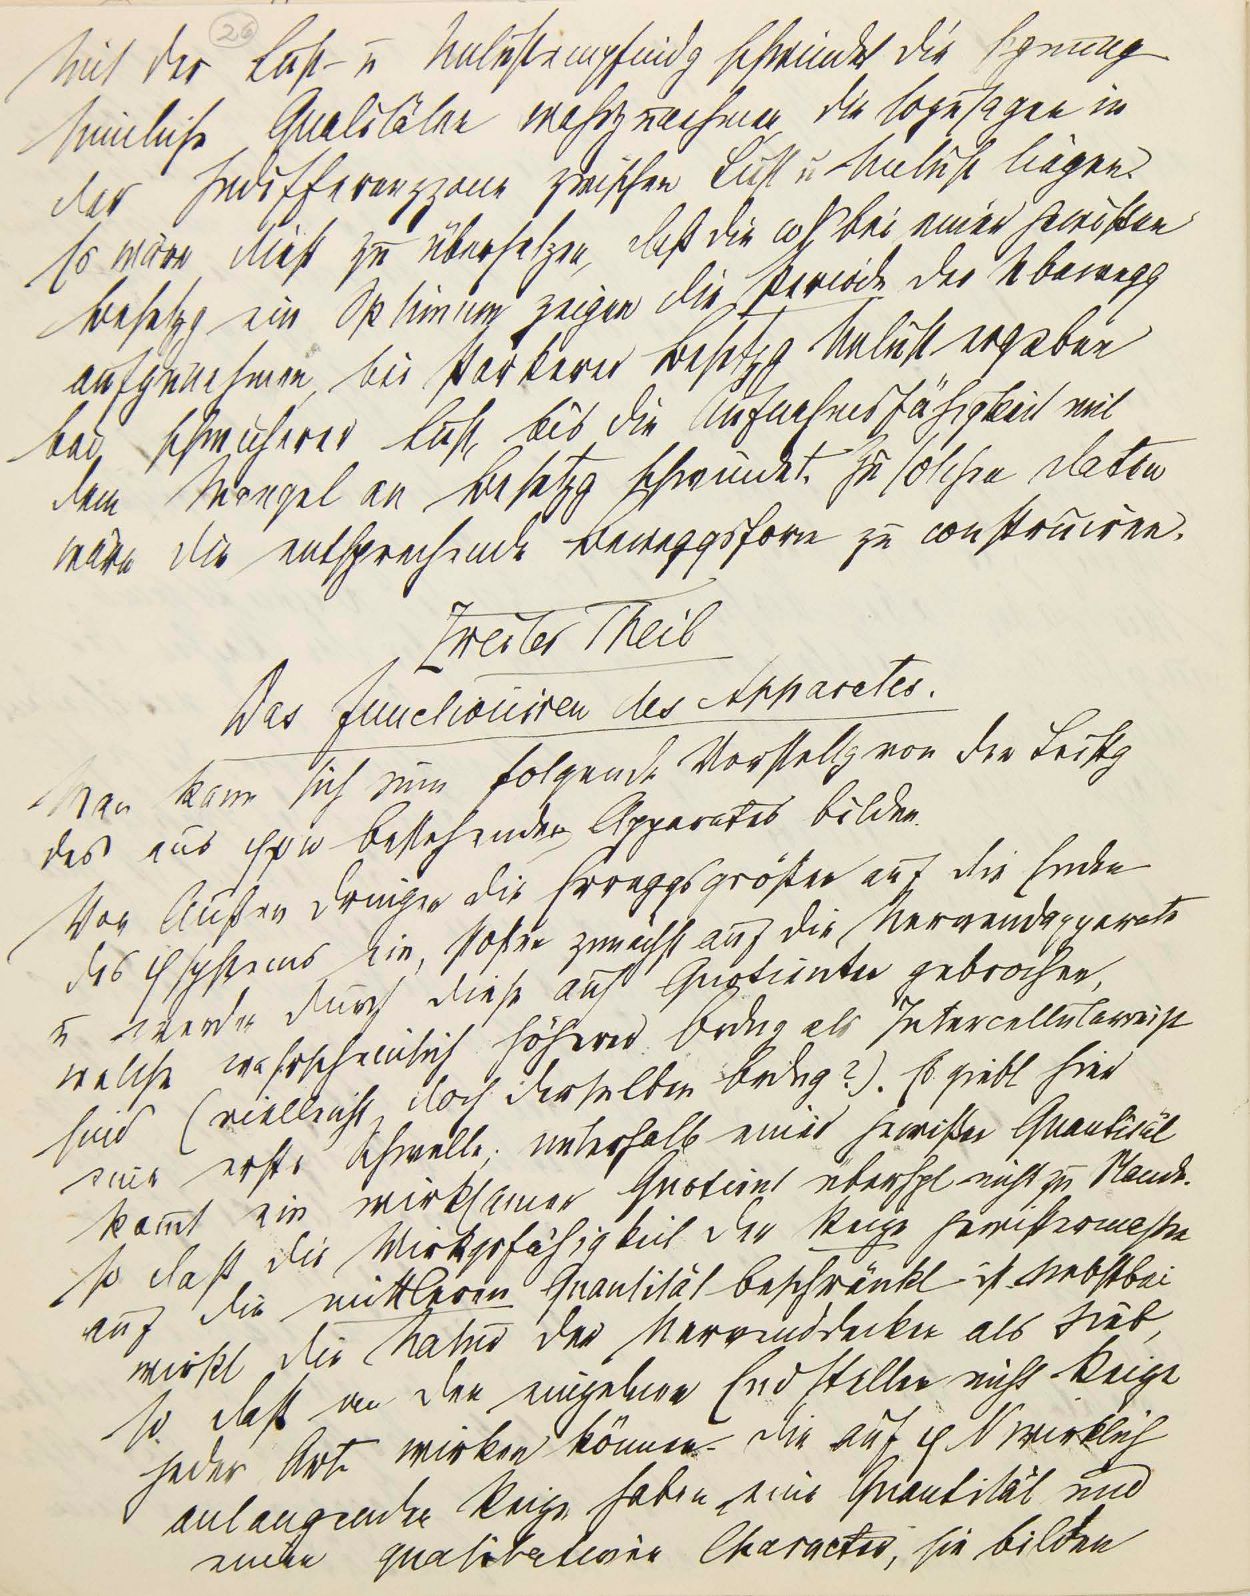 26
Mit der Lust- u Unlustempfindg schwindet die Eignung
sinnliche Qualitäten wahrzunehmen, die sozusagen in
der Indifferenzzone zwischen Lust u Unlust liegen.
Es wäre dieß zu übersetzen, daß die ωN bei einer gewissen
Besetzg ein Optimum zeigen die Periode der Nbewegg
aufzunehmen, bei stärkerer Besetzg Unlust ergeben
bei schwächerer Lust, bis die Aufnahmsfähigkeit mit
dem Mangel an Besetzg schwindet. Zu solchen Daten
wäre die entsprechende Beweggsform zu construiren.
Zweiter Theil
Das Functioniren des Apparates.
Man kann sich nun folgende Vorstellg von der Leistg
des aus φψω bestehenden Apparates bilden.
Von Außen dringen die Erreggsgrößen auf die Enden
des φsystems ein, stoßen zunächst auf die Nervenendapparate
u werden durch diese auf Quotienten gebrochen,
welche wahrscheinlich höherer Ordng als Intercellularreize
sind (vielleicht doch derselben Ordng?). Es giebt hier
eine erste Schwelle; unterhalb einer gewißen Quantität
kom̅t ein wirksamer Quotient überhpt nicht zu Stande.
so daß die Wirkgsfähigkeit der Reize gewissermaßen
auf die mittleren Quantität beschränkt ist nebstbei
wirkt die Natur der Nervenddecken als Sieb,
so daß an den einzelnen Endstellen nicht Reize
jeder Art wirken können. Die auf φN wirklich
anlangenden Reize haben eine Quantität und
einen qualitativen Character, sie bilden